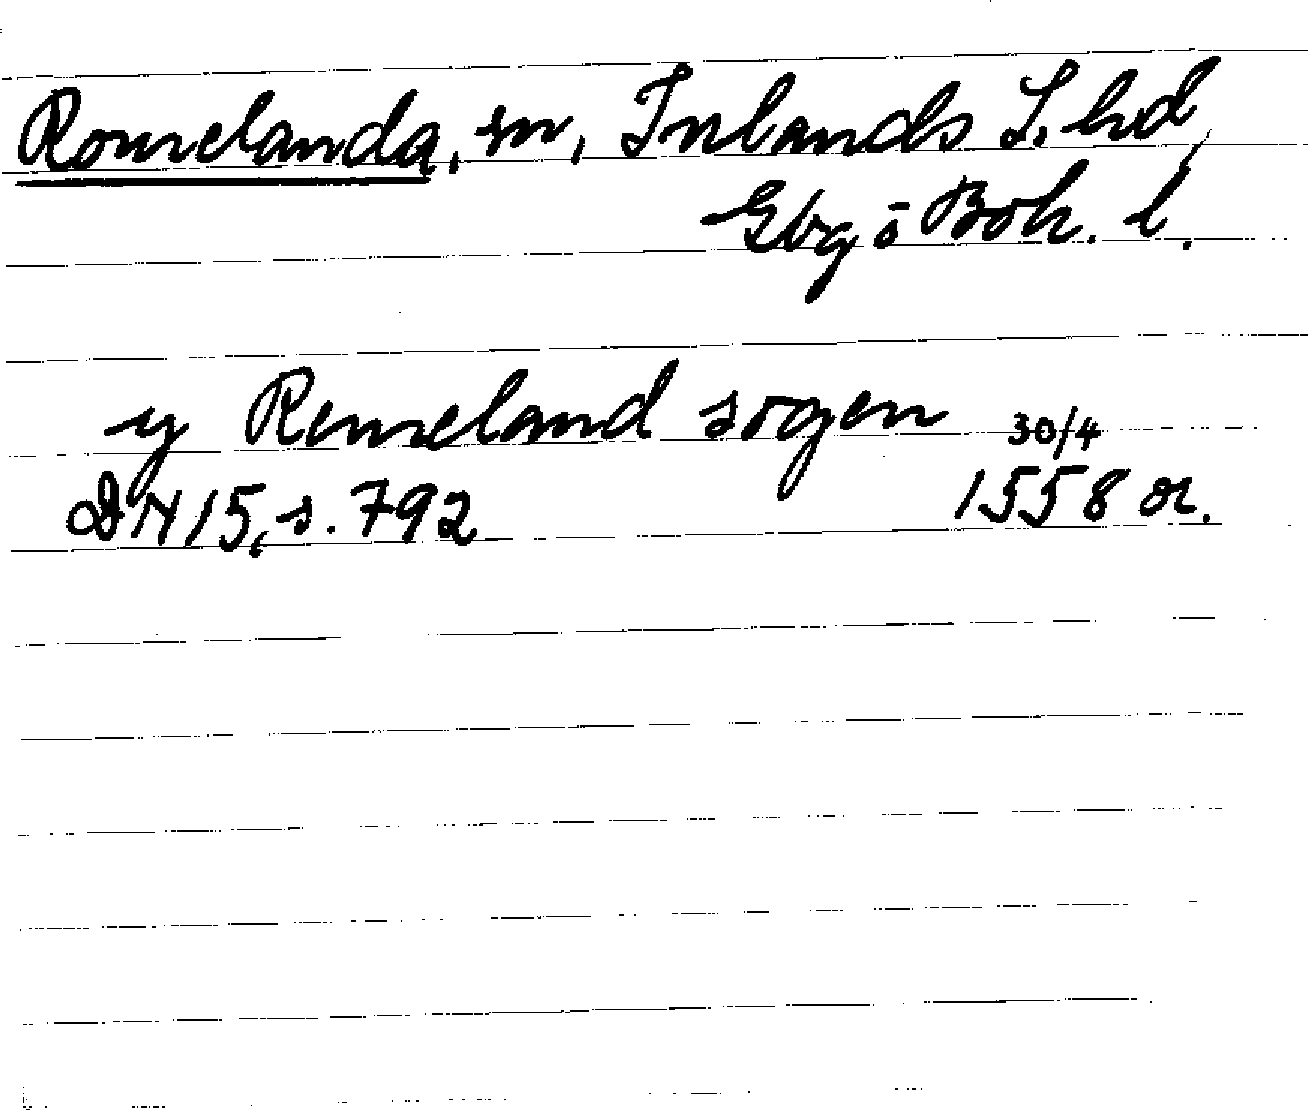 Romelanda, sn, Inlands S. hd,
Gbg o Boh. l.
y Remeland sogen 30/4
DN 15, s. 792 1558 or.